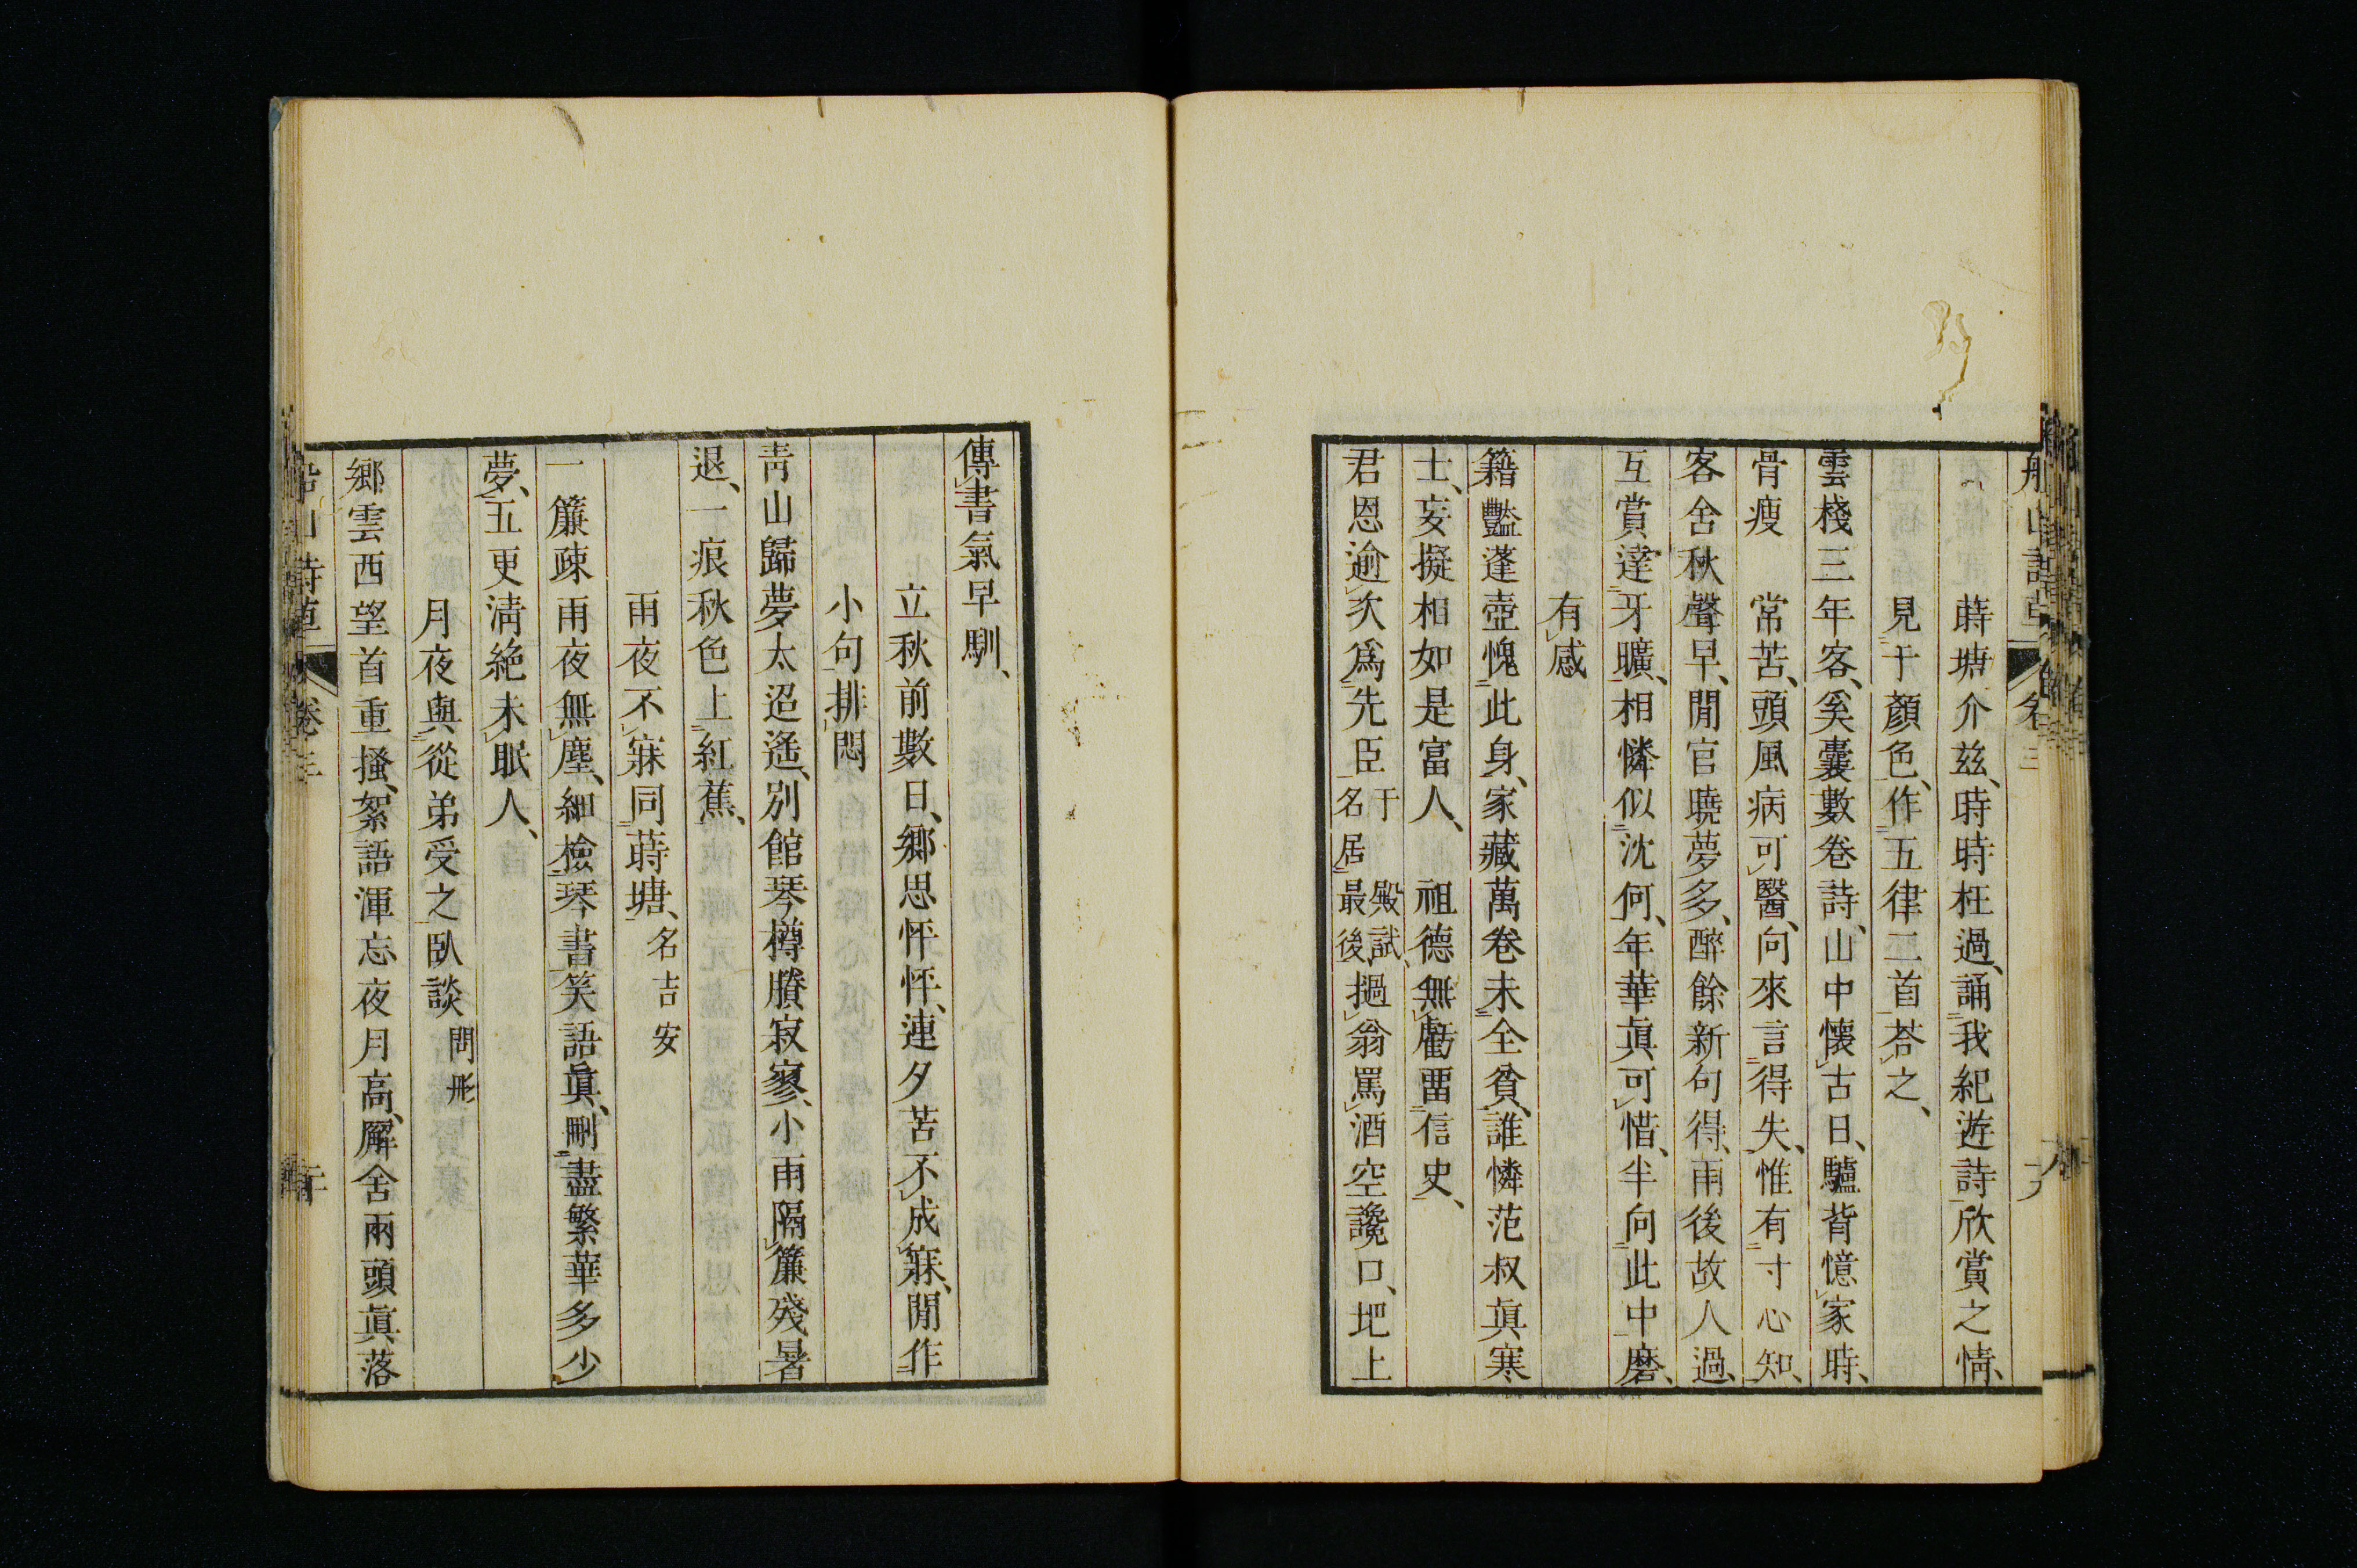 船山詩草 卷三 十九
蒔塘介茲、時時枉過、誦我紀遊詩欣賞之情、
見于顏色、作五律二首荅之、
雲棧三年客、奚囊數卷詩、山中懷古日、驢背憶家時、
骨瘦常苦、頭風病可醫、向來言得失、惟有寸心知、
客舍秋聲早、閒官曉夢多、醉餘新句得、雨後故人過、
互賞達牙曠、相憐似沈何、年華眞可惜、半向此中磨、
有感
籍豔蓬壺愧此身、家藏萬卷未全貧、誰憐范叔眞寒
士、妄擬相如是富人、祖德無虧畱信史、
君恩逾次爲先臣 于殿試、名居最後 撾翁罵酒空讒口、圯上
傳書氣早馴、
立秋前數日、鄉思怦怦、連夕苦不成寐、閒作
小句排悶
靑山歸夢太迢遙、別館琴樽賸寂寥、小雨隔簾殘暑
退、一痕秋色上紅蕉、
雨夜不寐同蒔塘、名吉安
一簾疎雨夜無塵、細檢琴書笑語眞、刪盡繁華多少
夢、五更淸絶未眠人、
月夜與從弟受之臥談 問彤
鄉雲西望首重搔、絮語渾忘夜月高、廨舍兩頭眞落
船山詩草 卷三 二十